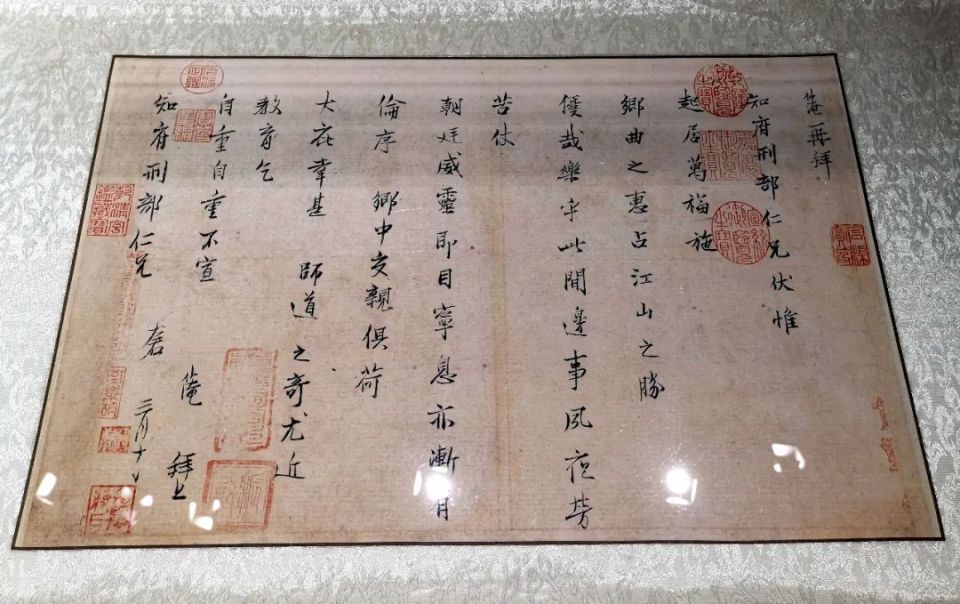 淹再拜
知府刑部仁兄伏惟
起居萬福施
鄉曲之惠占江山之勝
優哉樂乎此間邊事夙夜勞
苦仗
朝廷威靈即目寧息亦漸有
倫序 鄉中交親俱荷
大庇幸甚 師道之奇尤近
教育乞
自重自重不宣
淹 拜上
知府刑部仁兄 三月十